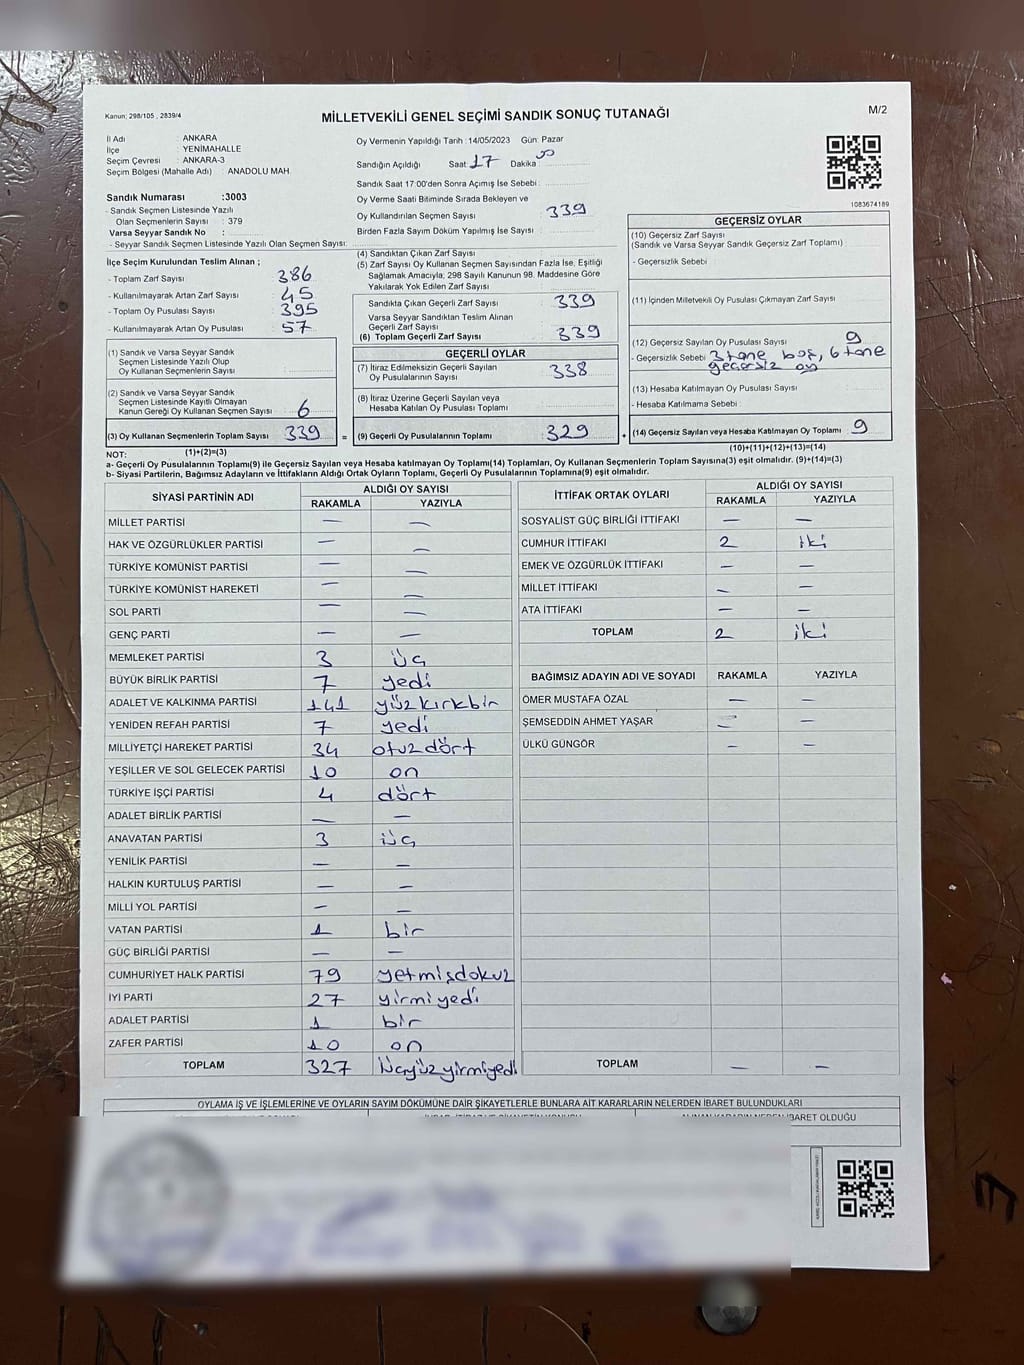 Kanun; 298/105 , 2839/4
MİLLETVEKİLİ GENEL SEÇİMİ SANDIK SONUÇ TUTANAĞI
M/2
İl Adı : ANKARA
İlçe : YENİMAHALLE
Seçim Çevresi : ANKARA-3
Seçim Bölgesi (Mahalle Adı) : ANADOLU MAH.
Sandık Numarası :3003
- Sandık Seçmen Listesinde Yazılı
Olan Seçmenlerin Sayısı : 379
Varsa Seyyar Sandık No :
- Seyyar Sandık Seçmen Listesinde Yazılı Olan Seçmen Sayısı:
İlçe Seçim Kurulundan Teslim Alınan ;
- Toplam Zarf Sayısı 386
- Kullanılmayarak Artan Zarf Sayısı 45
- Toplam Oy Pusulası Sayısı 395
- Kullanılmayarak Artan Oy Pusulası 57
(1) Sandık ve Varsa Seyyar Sandık
Seçmen Listesinde Yazılı Olup
Oy Kullanan Seçmenlerin Sayısı :
(2) Sandık ve Varsa Seyyar Sandık
Seçmen Listesinde Kayıtlı Olmayan
Kanun Gereği Oy Kullanan Seçmen Sayısı : 6
(3) Oy Kullanan Seçmenlerin Toplam Sayısı 339
Oy Vermenin Yapıldığı Tarih :14/05/2023 Gün: Pazar
Sandığın Açıldığı Saat 17 Dakika
Sandık Saat 17:00'den Sonra Açımış İse Sebebi :
Oy Verme Saati Bitiminde Sırada Bekleyen ve
Oy Kullandırılan Seçmen Sayısı : 339
Birden Fazla Sayım Döküm Yapılmış İse Sayısı :
(4) Sandıktan Çıkan Zarf Sayısı
(5) Zarf Sayısı Oy Kullanan Seçmen Sayısından Fazla İse, Eşitliği
Sağlamak Amacıyla; 298 Sayılı Kanunun 98. Maddesine Göre
Yakılarak Yok Edilen Zarf Sayısı :
Sandıkta Çıkan Geçerli Zarf Sayısı : 339
Varsa Seyyar Sandıktan Teslim Alınan
Geçerli Zarf Sayısı
(6) Toplam Geçerli Zarf Sayısı : 339
GEÇERLİ OYLAR
(7) İtiraz Edilmeksizin Geçerli Sayılan
Oy Pusulalarının Sayısı : 338
(8) İtiraz Üzerine Geçerli Sayılan veya
Hesaba Katılan Oy Pusulası Toplamı :
= (9) Geçerli Oy Pusulalarının Toplamı : 329
1083674189
GEÇERSİZ OYLAR
(10) Geçersiz Zarf Sayısı
(Sandık ve Varsa Seyyar Sandık Geçersiz Zarf Toplamı) :
- Geçersizlik Sebebi :
(11) İçinden Milletvekili Oy Pusulası Çıkmayan Zarf Sayısı :
(12) Geçersiz Sayılan Oy Pusulası Sayısı : 9
- Geçersizlik Sebebi 3 tane boş, 6 tane
geçersiz oy
(13) Hesaba Katılmayan Oy Pusulası Sayısı :
- Hesaba Katılmama Sebebi :
(14) Geçersiz Sayılan veya Hesaba Katılmayan Oy Toplamı : 9
NOT: (1)+(2)=(3) (10)+(11)+(12)+(13)=(14)
a- Geçerli Oy Pusulalarının Toplamı(9) ile Geçersiz Sayılan veya Hesaba katılmayan Oy Toplamı(14) Toplamları, Oy Kullanan Seçmenlerin Toplam Sayısına(3) eşit olmalıdır. (9)+(14)=(3)
b- Siyasi Partilerin, Bağımsız Adayların ve İttifakların Aldığı Ortak Oyların Toplamı, Geçerli Oy Pusulalarının Toplamına(9) eşit olmalıdır.
SİYASİ PARTİNİN ADI ALDIĞI OY SAYISI
RAKAMLA YAZIYLA
MİLLET PARTİSİ — —
HAK VE ÖZGÜRLÜKLER PARTİSİ — —
TÜRKİYE KOMÜNİST PARTİSİ — —
TÜRKİYE KOMÜNİST HAREKETİ — —
SOL PARTİ — —
GENÇ PARTİ — —
MEMLEKET PARTİSİ 3 üç
BÜYÜK BİRLİK PARTİSİ 7 yedi
ADALET VE KALKINMA PARTİSİ 141 yüzkırkbir
YENİDEN REFAH PARTİSİ 7 yedi
MİLLİYETÇİ HAREKET PARTİSİ 34 otuzdört
YEŞİLLER VE SOL GELECEK PARTİSİ 10 on
TÜRKİYE İŞÇİ PARTİSİ 4 dört
ADALET BİRLİK PARTİSİ — —
ANAVATAN PARTİSİ 3 üç
YENİLİK PARTİSİ — —
HALKIN KURTULUŞ PARTİSİ — —
MİLLİ YOL PARTİSİ — —
VATAN PARTİSİ 1 bir
GÜÇ BİRLİĞİ PARTİSİ — —
CUMHURİYET HALK PARTİSİ 79 yetmişdokuz
İYİ PARTİ 27 yirmiyedi
ADALET PARTİSİ 1 bir
ZAFER PARTİSİ 10 on
TOPLAM 327 üçyüzyirmiyedi
İTTİFAK ORTAK OYLARI ALDIĞI OY SAYISI
RAKAMLA YAZIYLA
SOSYALİST GÜÇ BİRLİĞİ İTTİFAKI — —
CUMHUR İTTİFAKI 2 iki
EMEK VE ÖZGÜRLÜK İTTİFAKI — —
MİLLET İTTİFAKI — —
ATA İTTİFAKI — —
TOPLAM 2 iki
BAĞIMSIZ ADAYIN ADI VE SOYADI RAKAMLA YAZIYLA
ÖMER MUSTAFA ÖZAL — —
ŞEMSEDDİN AHMET YAŞAR — —
ÜLKÜ GÜNGÖR — —
TOPLAM — —
OYLAMA İŞ VE İŞLEMLERİNE VE OYLARIN SAYIM DÖKÜMÜNE DAİR ŞİKAYETLERLE BUNLARA AİT KARARLARIN NELERDEN İBARET BULUNDUKLARI
ALINAN KARARIN NEDEN İBARET OLDUĞU